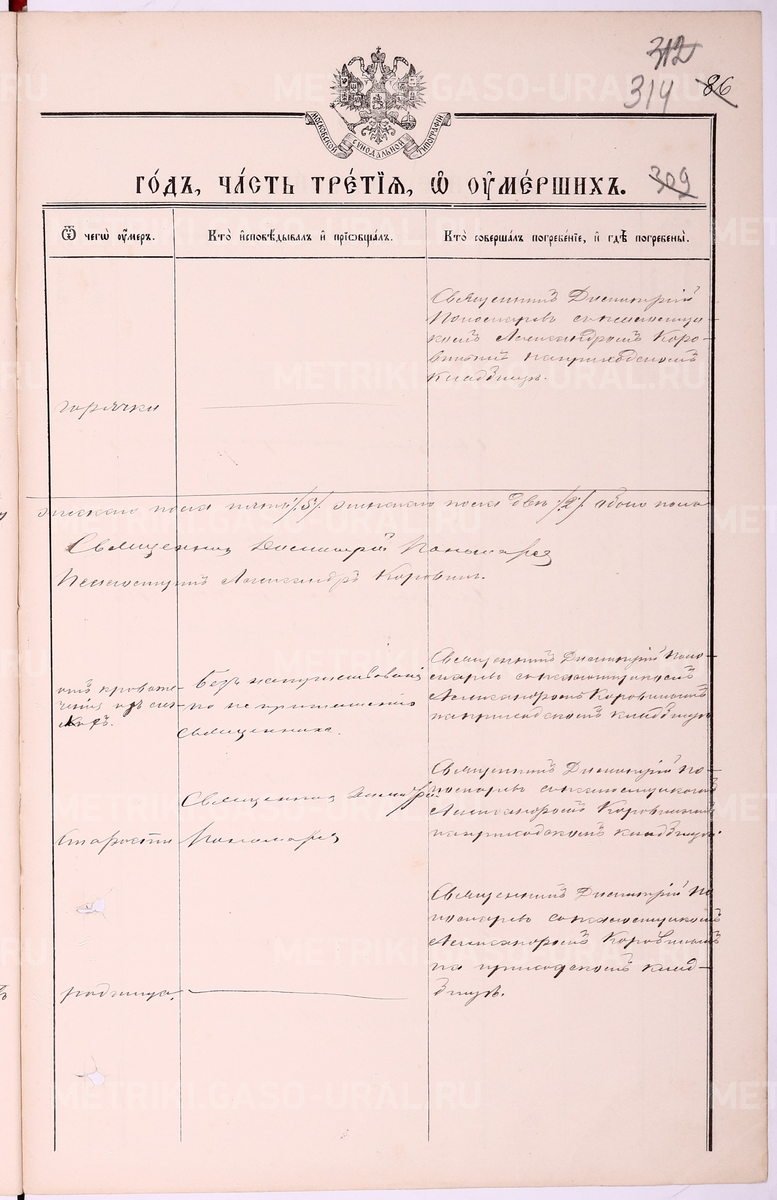 312
314
86
МОСКОВСКОЙ СѴНОДАЛЬНОЙ ТИПОГРАФІИ
ГО́ДЪ, ЧА́СТЬ ТРЕ́ТІЯ, Ѡ҆ ОУ҆МЕ́РШИХЪ.
309
Ѿ чегѡ̀ оу҆́меръ.
Кто̀ и҆сповѣ́дывалъ и҆ прїѡбща́лъ.
Кто̀ соверша́лъ погребе́нїе, и҆ гдѣ̀ погребены̀.
Священникъ Димитрій
Пономаревъ съ псаломщи-
комъ Александромъ Коро-
винымъ на приходскомъ
кладбищѣ.
горячки
мужскаго пола пять /5/ женскаго пола два /2/ обоего пола
Священникъ Димитрій Пономаревъ
Псаломщикъ Александръ Коровинъ.
отъ кровоте-
ченія изъ
Безъ напутствованія
по не приглашенію
священника.
Священникъ Димитрій Поно-
маревъ съ псаломщикомъ
Александромъ Коровинымъ
на приходскомъ кладбищѣ
старости
Священникъ Димитрій
Пономаревъ
Священникъ Димитрій По-
номаревъ съ псаломщикомъ
Александромъ Коровинымъ
на приходскомъ кладбищѣ.
родимца.
Священникъ Димитрій По-
номаревъ съ псаломщикомъ
Александромъ Коровинымъ
на приходскомъ клад-
бищѣ.
METRIKI.GASO-URAL.RU